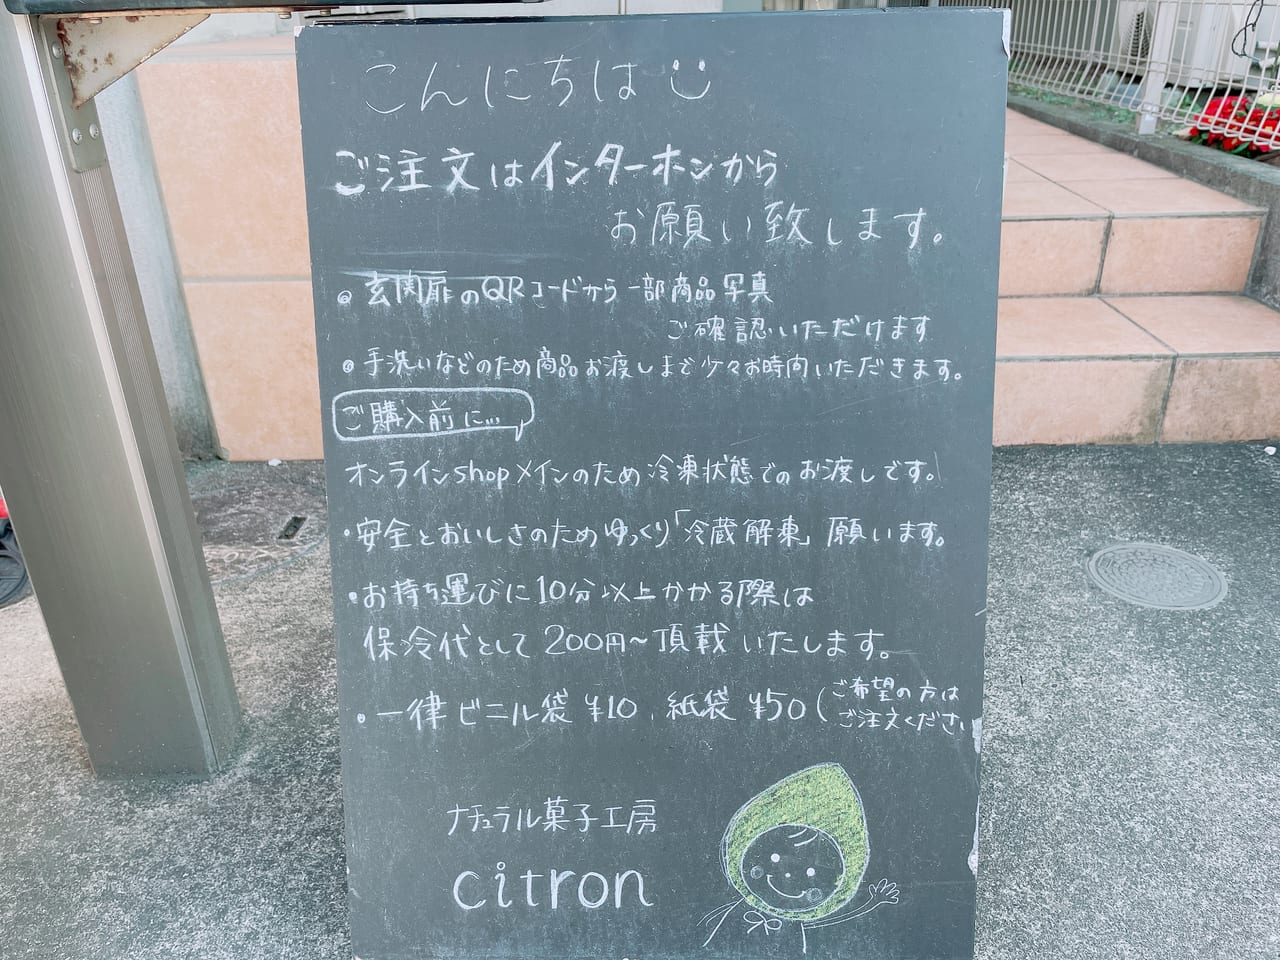 こんにちは
ご注文はインターホンから
お願い致します。
玄関扉のQRコードから一部商品写真
ご確認いただけます
手洗いなどのため商品お渡しまで少々お時間いただきます。
ご購入前に...
オンラインshopメインのため冷凍状態でのお渡しです。
・安全とおいしさのためゆっくり「冷蔵解凍」願います。
・お持ち運びに10分以上かかる際は
保冷代として200円〜頂戴いたします。
・一律ビニル袋¥10、紙袋¥50(ご希望の方は
ご注文ください
ナチュラル菓子工房
citron